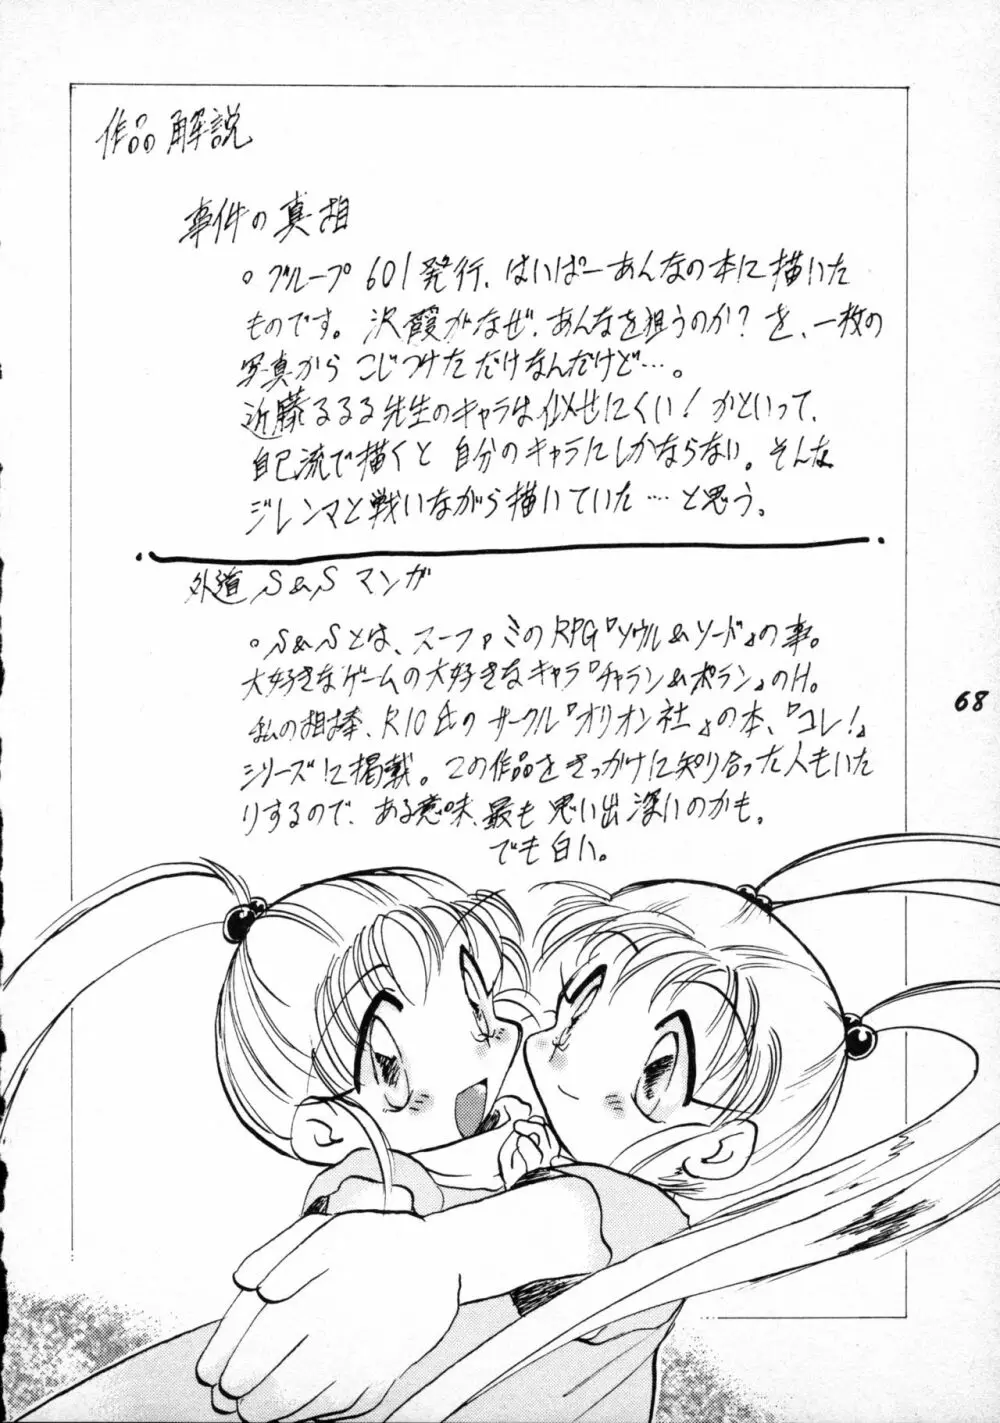 作品の解説
事件の真相
。グループ601発行、はいぱーあんなの本に描いた
ものです。沢霞がなぜ、あんなを狙うのか？を、一枚の
写真からこじつけただけなんだけど…。
近藤るるる先生のキャラは似せにくい！かといって、
自己流で描くと自分のキャラにしかならない。そんな
ジレンマと戦いながら描いていた…と思う。
外道S&Sマンガ
。S&Sとは、スーファミのRPG『ソウル&ソード』の事。
大好きなゲームの大好きなキャラ『チャラン&ポラン』のH。
私の相棒、R10氏のサークル『オリオン社』の本、『コレ！』
シリーズに掲載。この作品をきっかけに知り合った人もいた
りするので、ある意味、最も思い出深いのかも。
でも白い。
68